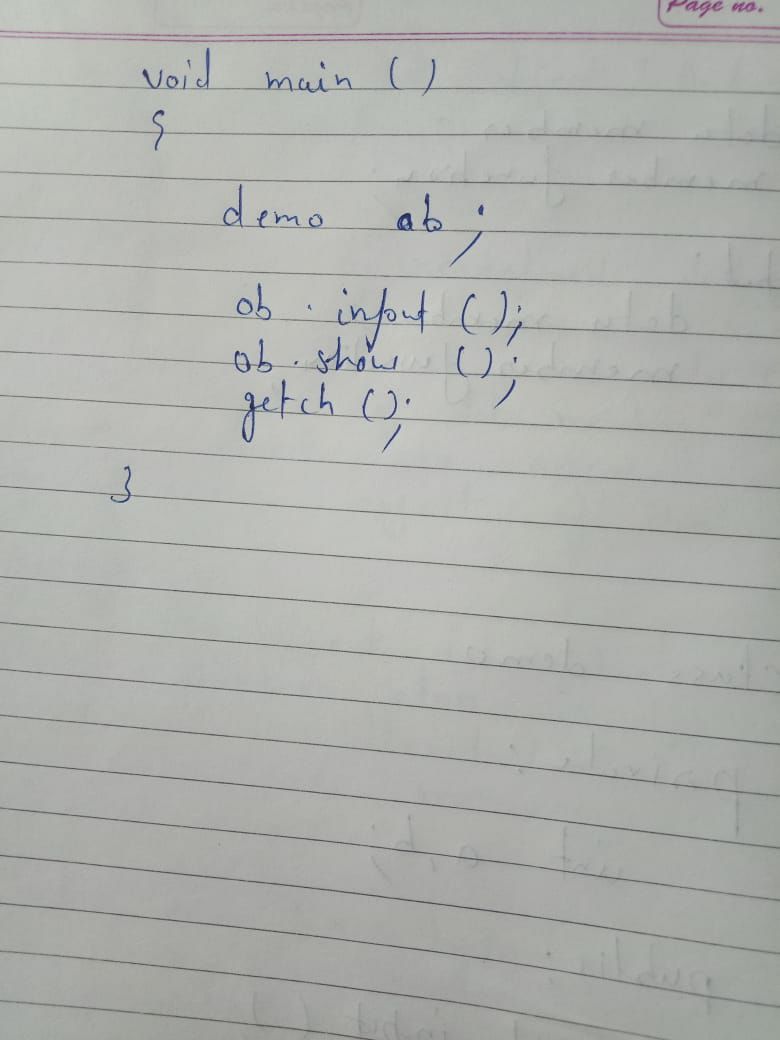 Page no.
void main ()
{
demo ob ;
ob . input ();
ob . show ();
getch ();
}